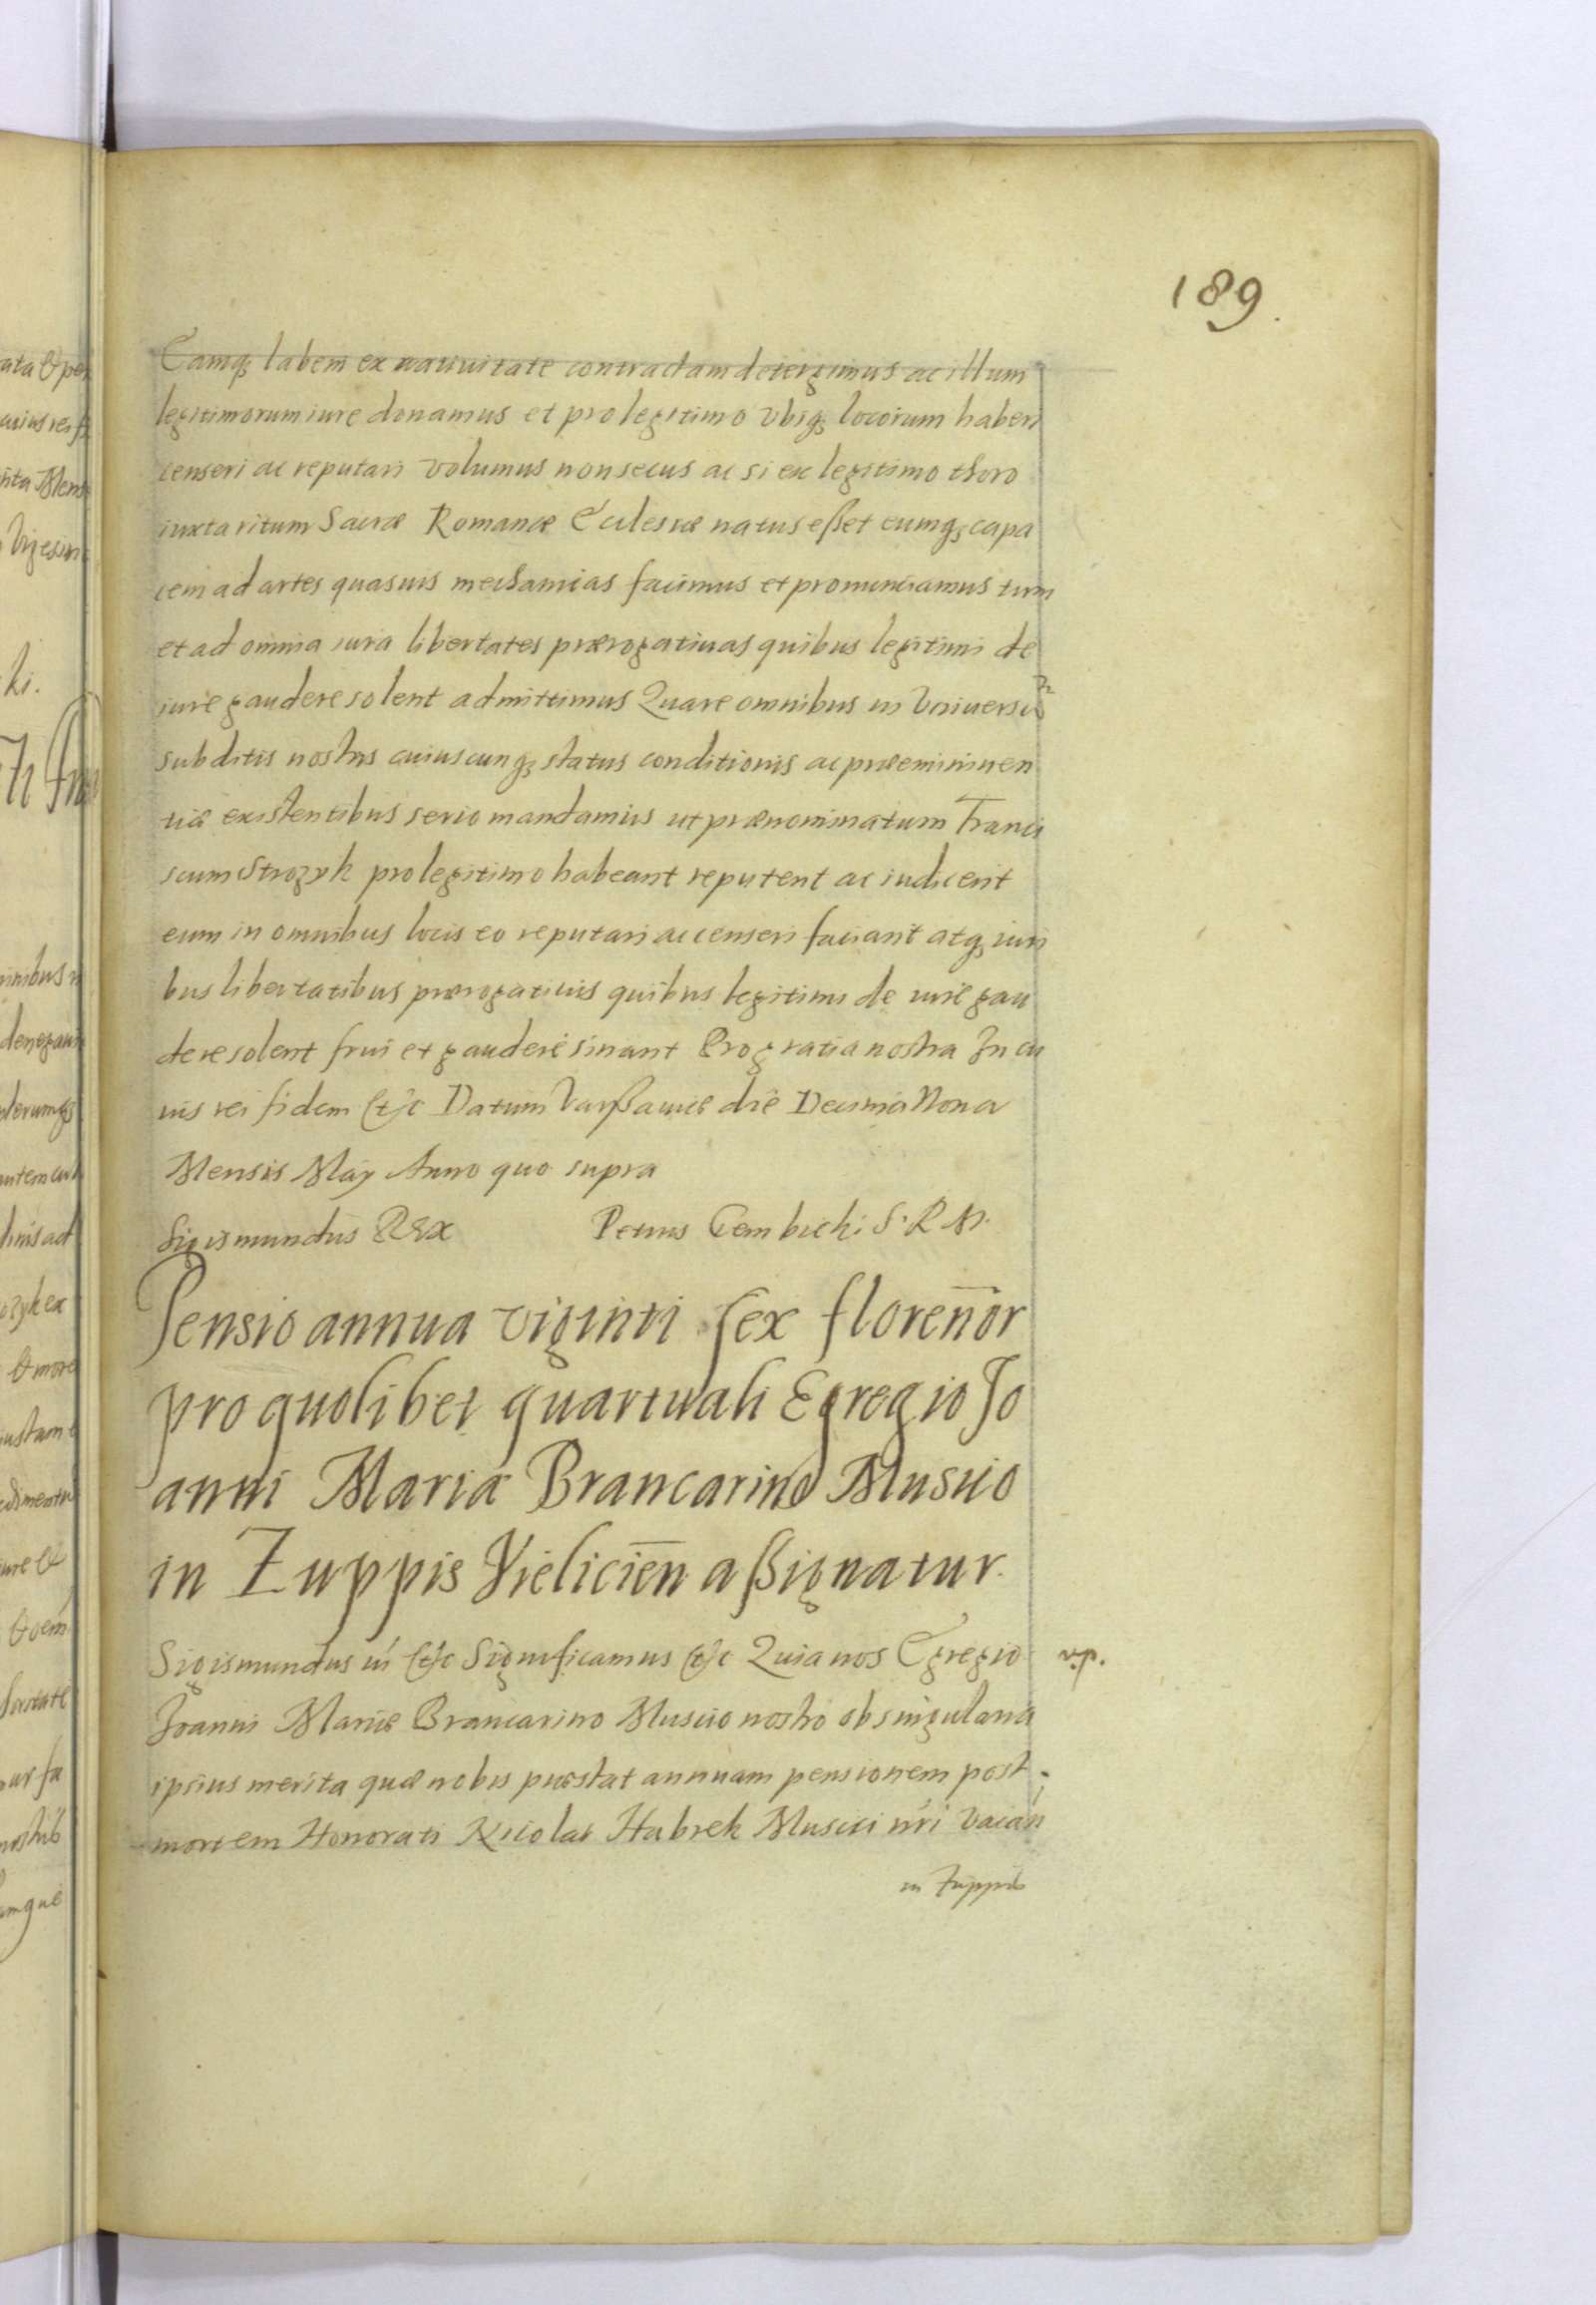 189.
Eamq₃ labem ex natiuitate contractam detergimus ac illum
legitimorum iure donamus et pro legitimo vbiq₃ locorum haberi
censeri ac reputari volumus non secus ac si ex legitimo thoro
iuxta ritum Sacræ Romanæ Ecclesiæ natus eßet eumq₃ capa
cem ad artes quasuis mechanicas facimus et pronunciamus tum
et ad omnia iura libertates prærogatiuas quibus legitimi de
iure gaudere solent admittimus Quare omnibus in Vniuersu
subditis nostris cuiuscunq₃ status conditionis ac præeminen
tiæ existentibus serio mandamus ut prænominatum Franci
scum Strozyk pro legitimo habeant reputent ac iudicent
eum in omnibus locis eo reputari ac censeri faciant atq₃ iuri
bus libertatibus prærogatiuis quibus legitimi de iure gau
dere solent frui et gaudere sinant Pro gratia nostra In cu
ius rei fidem etc Datum Varßauiæ die Decima Nona
Mensis May Anno quo supra
Sigismundus Rex Petrus Gembicki S. R. M.
Pensio annua viginti sex florenor
pro quolibet quartuali Egregio Jo
anni Maria Brancarino Musico
in Zuppis Vielicien aßignatur.
Sigismundus etc Significamus etc Quia nos Egregio v.p.
Joanni Mariæ Brancarino Musico nostro ob singularia
ipsius merita quæ nobis præstat annuam pensionem post
mortem Honorati Nicolai Habrek Musici nri vacan
in Zuppis